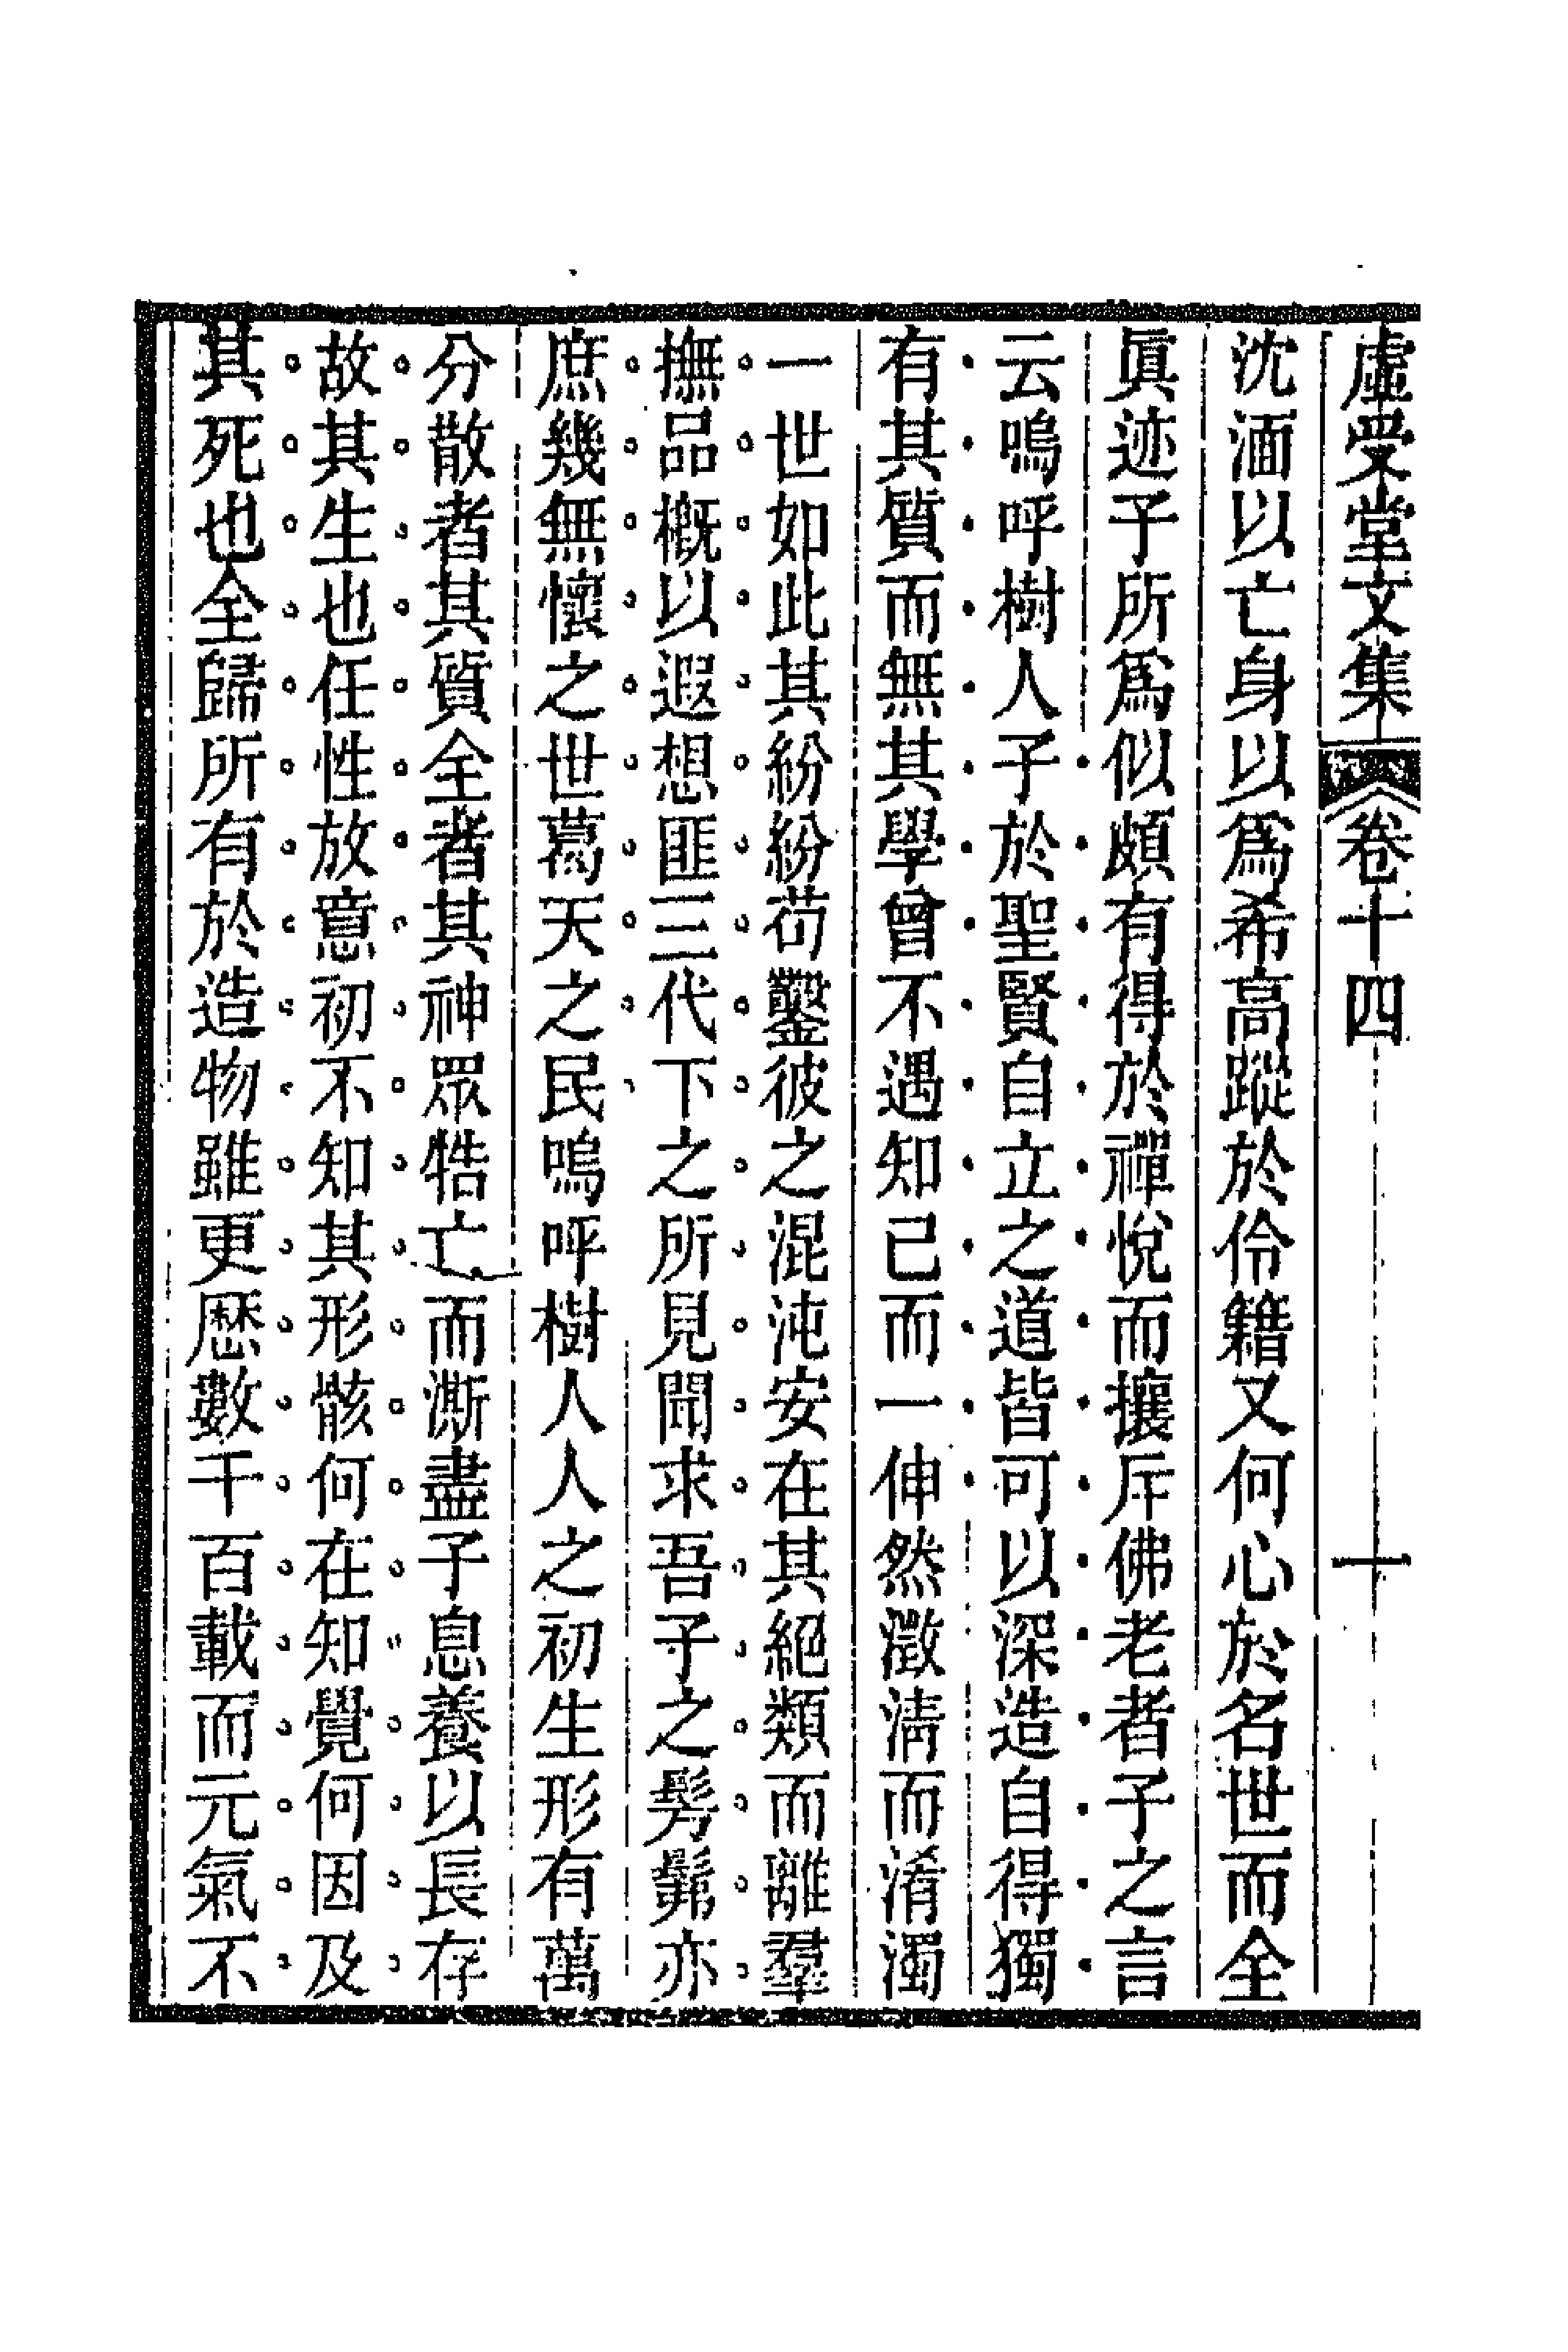 虛受堂文集 卷十四 十
沈湎以亡身以爲希高蹤於伶籍又何心於名世而全
眞迹子所爲似頗有得於禪悅而攘斥佛老者子之言
云嗚呼樹人子於聖賢自立之道皆可以深造自得獨
有其質而無其學曾不遇知己而一伸然澂淸而淆濁
一世如此其紛紛苟鑿彼之混沌安在其絕類而離羣
撫品槪以遐想匪三代下之所見聞求吾子之髣髴亦
庶幾無懷之世葛天之民嗚呼樹人人之初生形有萬
分散者其質全者其神眾牿亡而澌盡子息養以長存
故其生也任性放意初不知其形骸何在知覺何因及
其死也全歸所有於造物雖更歷數千百載而元氣不